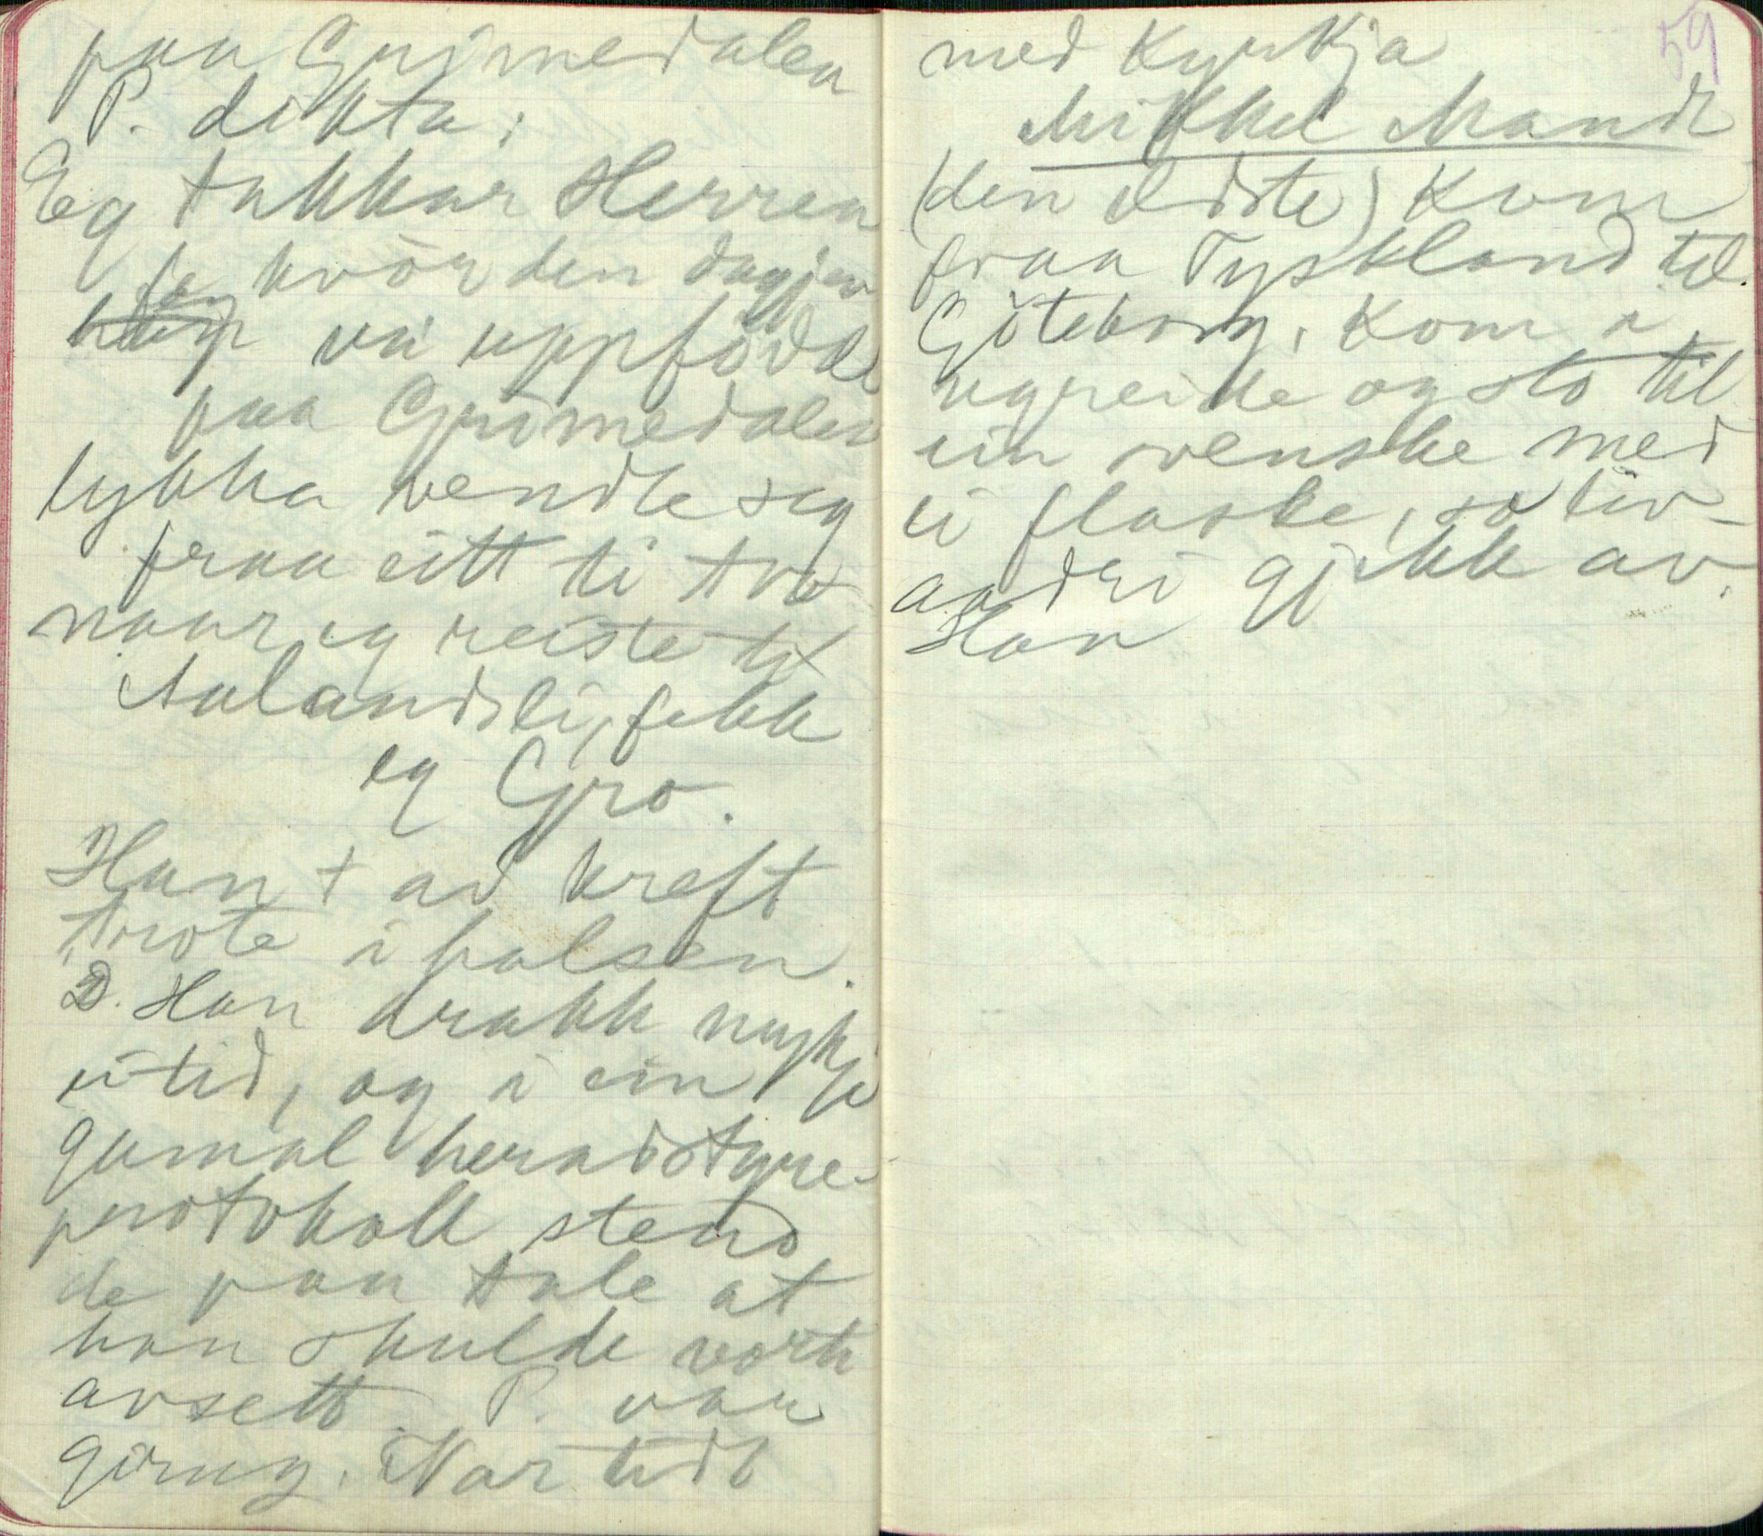 paa Grimedalen
P. dikta:
Eg takkar Herren
fø kvör den dagjen
vi uppfödde
paa Grimedalen
lykka vendte seg
fraa eitt ti tvo
naar eg reiste til
Aalandsli, fekk
eg Gro.
Han + av kreft
trote i halsen.
D. Han drakk mykje
ei tid, og i ein
gamal heradstyre-
protokoll stend
de paa tale at
han skulde vorte
avsett. P. var
girug. Var tidt
med Kyrkja
59
Mikkel Mandt
(den eldste) kom
fraa Tyskland til
Göteborg. Kom i
ugreide og slo til
ein svenske med
ei flaske, so liv-
aadri gjekk av.
Han